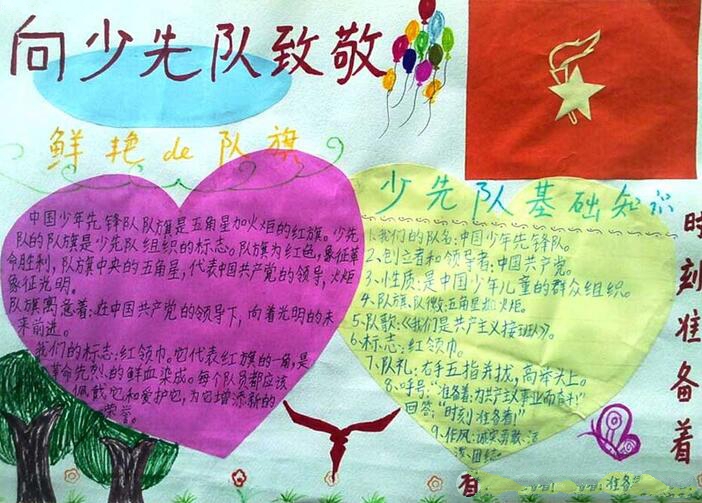 向少先队致敬
鲜艳de队旗
中国少年先锋队队旗是五角星加火炬的红旗。少先
队的队旗是少先队组织的标志。队旗为红色,象征革
命胜利,队旗中央的五角星,代表中国共产党的领导,火炬
象征光明。
队旗寓意着:在中国共产党的领导下,向着光明的未
来前进。
我们的标志:红领巾。它代表红旗的一角,是
革命先烈的鲜血染成。每个队员都应该
佩戴它和爱护它,为它增添新的
荣誉。
少先队基础知识
1、我们的队名:中国少年先锋队。
2、创立者和领导者:中国共产党。
3、性质:是中国少年儿童的群众组织。
4、队旗、队徽:五角星加火炬。
5、队歌:《我们是共产主义接班人》。
6、标志:红领巾。
7、队礼:右手五指并拢,高举头上。
8、呼号:“准备着:为共产主义事业而奋斗!”
回答:“时刻准备着!”
9、作风:诚实、勇敢、活
泼、团结
时刻准备着
准备